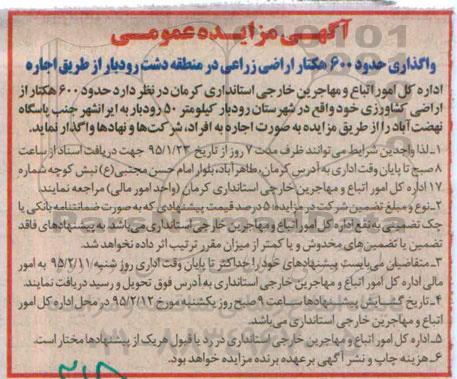 آگهی مزایده عمومی
واگذاری حدود ۶۰۰ هکتار اراضی زراعی در منطقه دشت رودبار از طریق اجاره
اداره کل امور اتباع و مهاجرین خارجی استانداری کرمان در نظر دارد حدود ۶۰۰ هکتار از
اراضی کشاورزی خود واقع در شهرستان رودبار کیلومتر ۵۰ رودبار به ایرانشهر جنب پاسگاه
نهضت آباد را از طریق مزایده به صورت اجاره به افراد، شرکت‌ها و نهادها واگذار نماید.
۱-لذا واجدین شرایط می‌توانند ظرف مدت ۷ روز از تاریخ ۹۵/۱/۲۳ جهت دریافت اسناد از ساعت
۸ صبح تا پایان وقت اداری به آدرس کرمان، طاهرآباد، بلوار امام حسن مجتبی(ع) نبش کوچه شماره
۱۷ اداره کل امور اتباع و مهاجرین خارجی استانداری کرمان (واحد امور مالی) مراجعه نمایند.
۲-نوع و مبلغ تضمین شرکت در مزایده: ۵ درصد قیمت پیشنهادی که به صورت ضمانتنامه بانکی یا
چک تضمینی به نفع اداره کل امور اتباع و مهاجرین خارجی استانداری می‌باشد به پیشنهادهای فاقد
تضمین یا تضمین‌های مخدوش و یا کمتر از میزان مقرر ترتیب اثر داده نخواهد شد.
۳-متقاضیان می‌بایست پیشنهادهای خود را حداکثر تا پایان وقت اداری روز شنبه ۹۵/۲/۱۱ به امور
مالی اداره کل امور اتباع و مهاجرین خارجی استانداری به آدرس فوق تحویل و رسید دریافت نمایند.
۴-تاریخ گشایش پیشنهادها ساعت ۹ صبح روز یکشنبه مورخ ۹۵/۲/۱۲ در محل اداره کل امور
اتباع و مهاجرین خارجی استانداری می‌باشد.
۵-اداره کل امور اتباع و مهاجرین خارجی استانداری در رد یا قبول هر یک از پیشنهادها مختار است.
۶-هزینه چاپ و نشر آگهی بر عهده برنده مزایده خواهد بود.